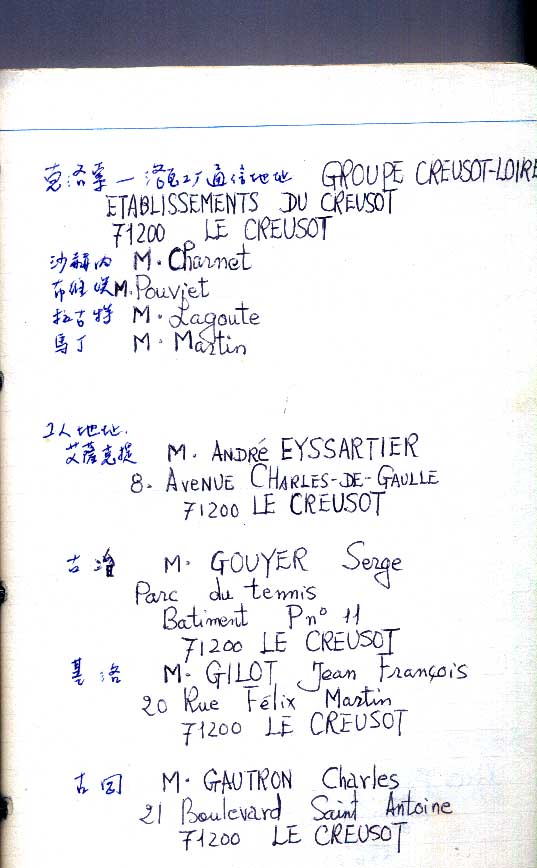 克洛索—洛瓦工厂通信地址 GROUPE CREUSOT-LOIRE
ETABLISSEMENTS DU CREUSOT
71200 LE CREUSOT
沙赫内 M. Charnet
布维埃 M. Pouvjet
拉古特 M. Lagoute
馬丁 M. Martin
工人地址.
艾薩克提 M. ANDRé EYSSARTIER
8. AVENUE CHARLES-DE-GAULLE
71200 LE CREUSOT
古 M. GOUYER Serge
Parc du tennis
Batiment P n° 11
71200 LE CREUSOT
基洛 M. GILOT Jean François
20 Rue Félix Martin
71200 LE CREUSOT
古 M. GAUTRON Charles
21 Boulevard Saint Antoine
71200 LE CREUSOT